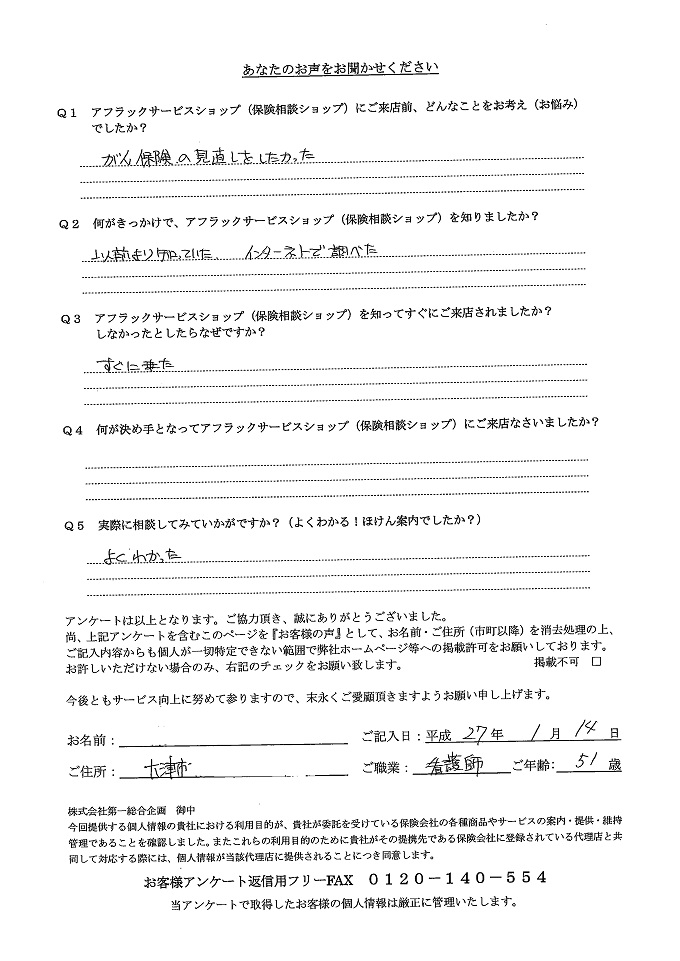 あなたのお声をお聞かせください
Q1 アフラックサービスショップ（保険相談ショップ）にご来店前、どんなことをお考え（お悩み）
でしたか？
がん保険の見直しをしたかった
Q2 何がきっかけで、アフラックサービスショップ（保険相談ショップ）を知りましたか？
以前より知っていた インターネットで調べた
Q3 アフラックサービスショップ（保険相談ショップ）を知ってすぐにご来店されましたか？
しなかったとしたらなぜですか？
すぐに来た
Q4 何が決め手となってアフラックサービスショップ（保険相談ショップ）にご来店なさいましたか？
Q5 実際に相談してみていかがですか？（よくわかる！ほけん案内でしたか？）
よくわかった
アンケートは以上となります。ご協力頂き、誠にありがとうございました。
尚、上記アンケートを含むこのページを『お客様の声』として、お名前・ご住所（市町以降）を消去処理の上、
ご記入内容からも個人が一切特定できない範囲で弊社ホームページ等への掲載許可をお願いしております。
お許しいただけない場合のみ、右記のチェックをお願い致します。 掲載不可 □
今後ともサービス向上に努めて参りますので、末永くご愛顧頂きますようお願い申し上げます。
お名前： ご記入日：平成 27 年 1 月 14 日
ご住所： 大津市 ご職業： 看護師 ご年齢： 51 歳
株式会社第一総合企画 御中
今回提供する個人情報の貴社における利用目的が、貴社が委託を受けている保険会社の各種商品やサービスの案内・提供・維持
管理であることを確認しました。またこれらの利用目的のために貴社がその提携先である保険会社に登録されている代理店と共
同して対応する際には、個人情報が当該代理店に提供されることにつき同意します。
お客様アンケート返信用フリーFAX 0120－140－554
当アンケートで取得したお客様の個人情報は厳正に管理いたします。